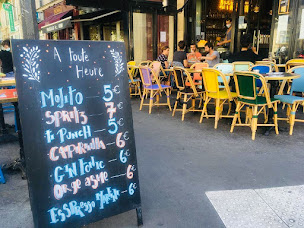 A Toute
Heure
Mojito 5€
SPRITZ 7€
Ti PUNCH 5€
CAÏPIRINHA 6€
GIN TONIC 6€
6€
ESPRESSO Martini 6€